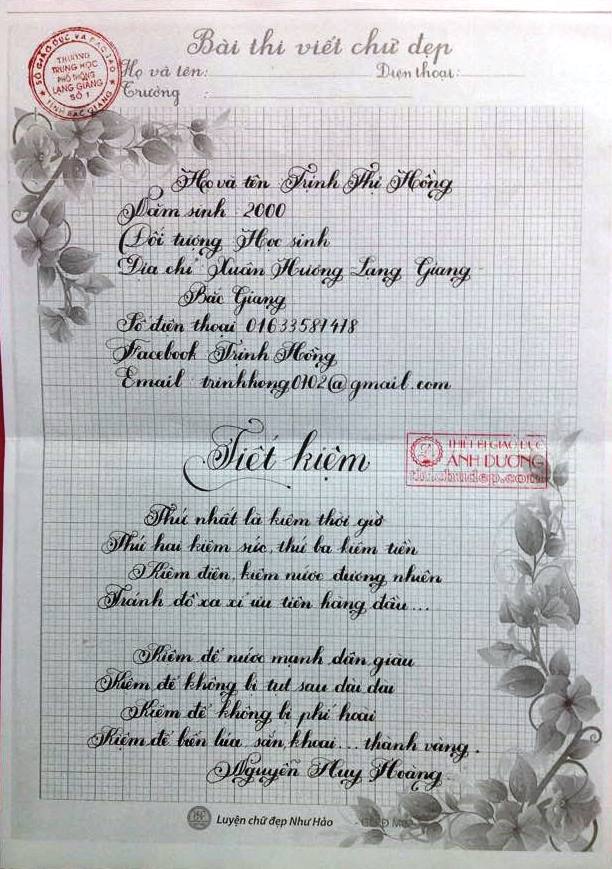 Bài thi viết chữ đẹp
SỞ GIÁO DỤC VÀ ĐÀO TẠO
TRƯỜNG
TRUNG HỌC
PHỔ THÔNG
LẠNG GIANG
SỐ 1
TỈNH BẮC GIANG
Họ và tên: Điện thoại:
Trường :
Họ và tên Trịnh Thị Hồng
Năm sinh : 2000
Đối tượng Học sinh
Địa chỉ Xuân Hương Lạng Giang
Bắc Giang
Số điện thoại 01633581418
Facebook Trịnh Hồng
Email : trinhhong0102@gmail.com
Tiết kiệm
THIẾT BỊ GIÁO DỤC
ÁNH DƯƠNG
Thứ nhất là kiệm thời giờ
Thứ hai kiệm sức, thứ ba kiệm tiền
Kiệm điện, kiệm nước đương nhiên
Tránh đồ xa xỉ ưu tiên hàng đầu...
Kiệm để nước mạnh dân giàu
Kiệm để không bị tụt sau dài dài
Kiệm để không bị phí hoài
Kiệm để biến lúa, sắn, khoai... thành vàng.
Nguyễn Huy Hoàng
Luyện chữ đẹp Như Hảo